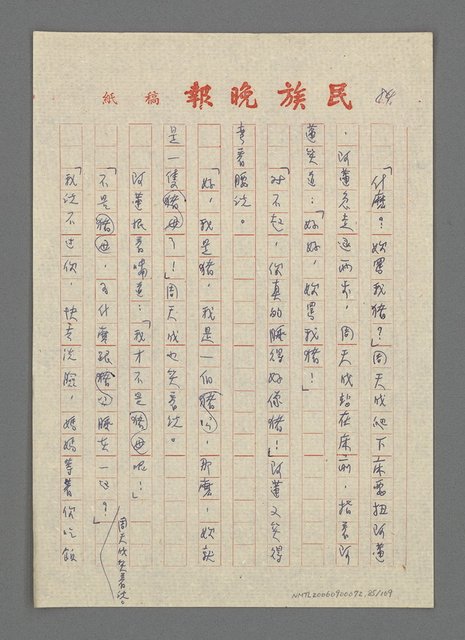 民族晚報 稿紙
84
「什麼?妳罵我猪?」周天成爬下床要扭阿蓮
,阿蓮急走過兩步,周天成站在床前,指著阿
蓮笑道:「好好,妳罵我猪!」
「対不起,你真的睡得好像猪!」阿蓮又笑得
彎着腰說。
「好,我是猪,我是一個猪公,那麼,妳就
是一隻猪母了!」周天成也笑着說。
阿蓮恨着嘴道:「我才不是猪母呢!」
「不是猪母,為什麼跟猪公睡在一起?」
周天成笑着說。
「我說不过你,快去洗臉,媽媽等着你吃飯
NMTL20060900092, 85/109